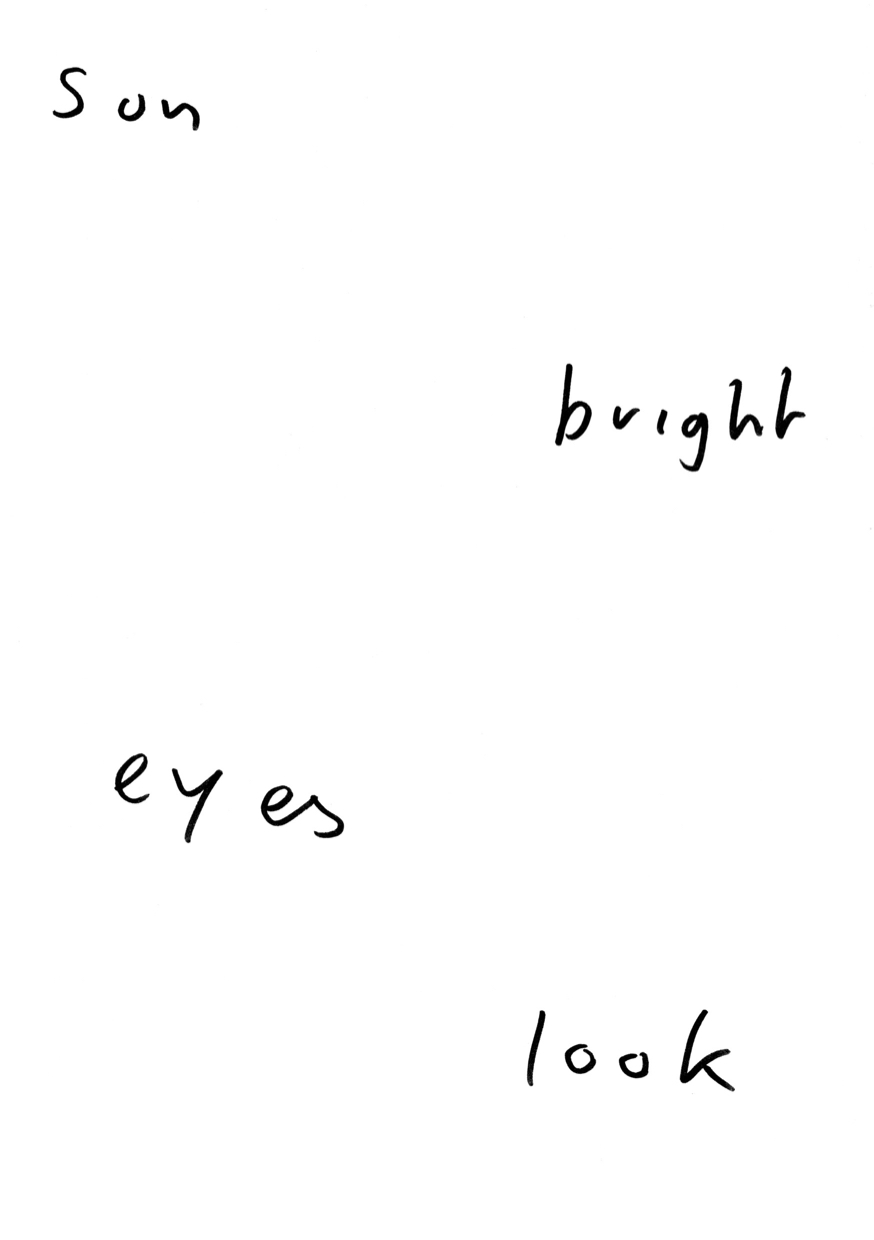 Sun
bright
eyes
look